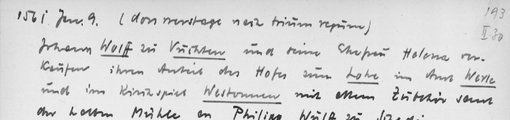 1561 Jan. 9. (donnerstage na trium regum) 193
Johann Wolff zu Vüchten und seine Ehefrau Helena ver- II 30
kaufen ihren Anteil des Hofes zum Lohe im Amt Werle
und im Kirchspiel Westönnen mit allem Zubehör samt
der halben Mühle an Philipp Wulff zu